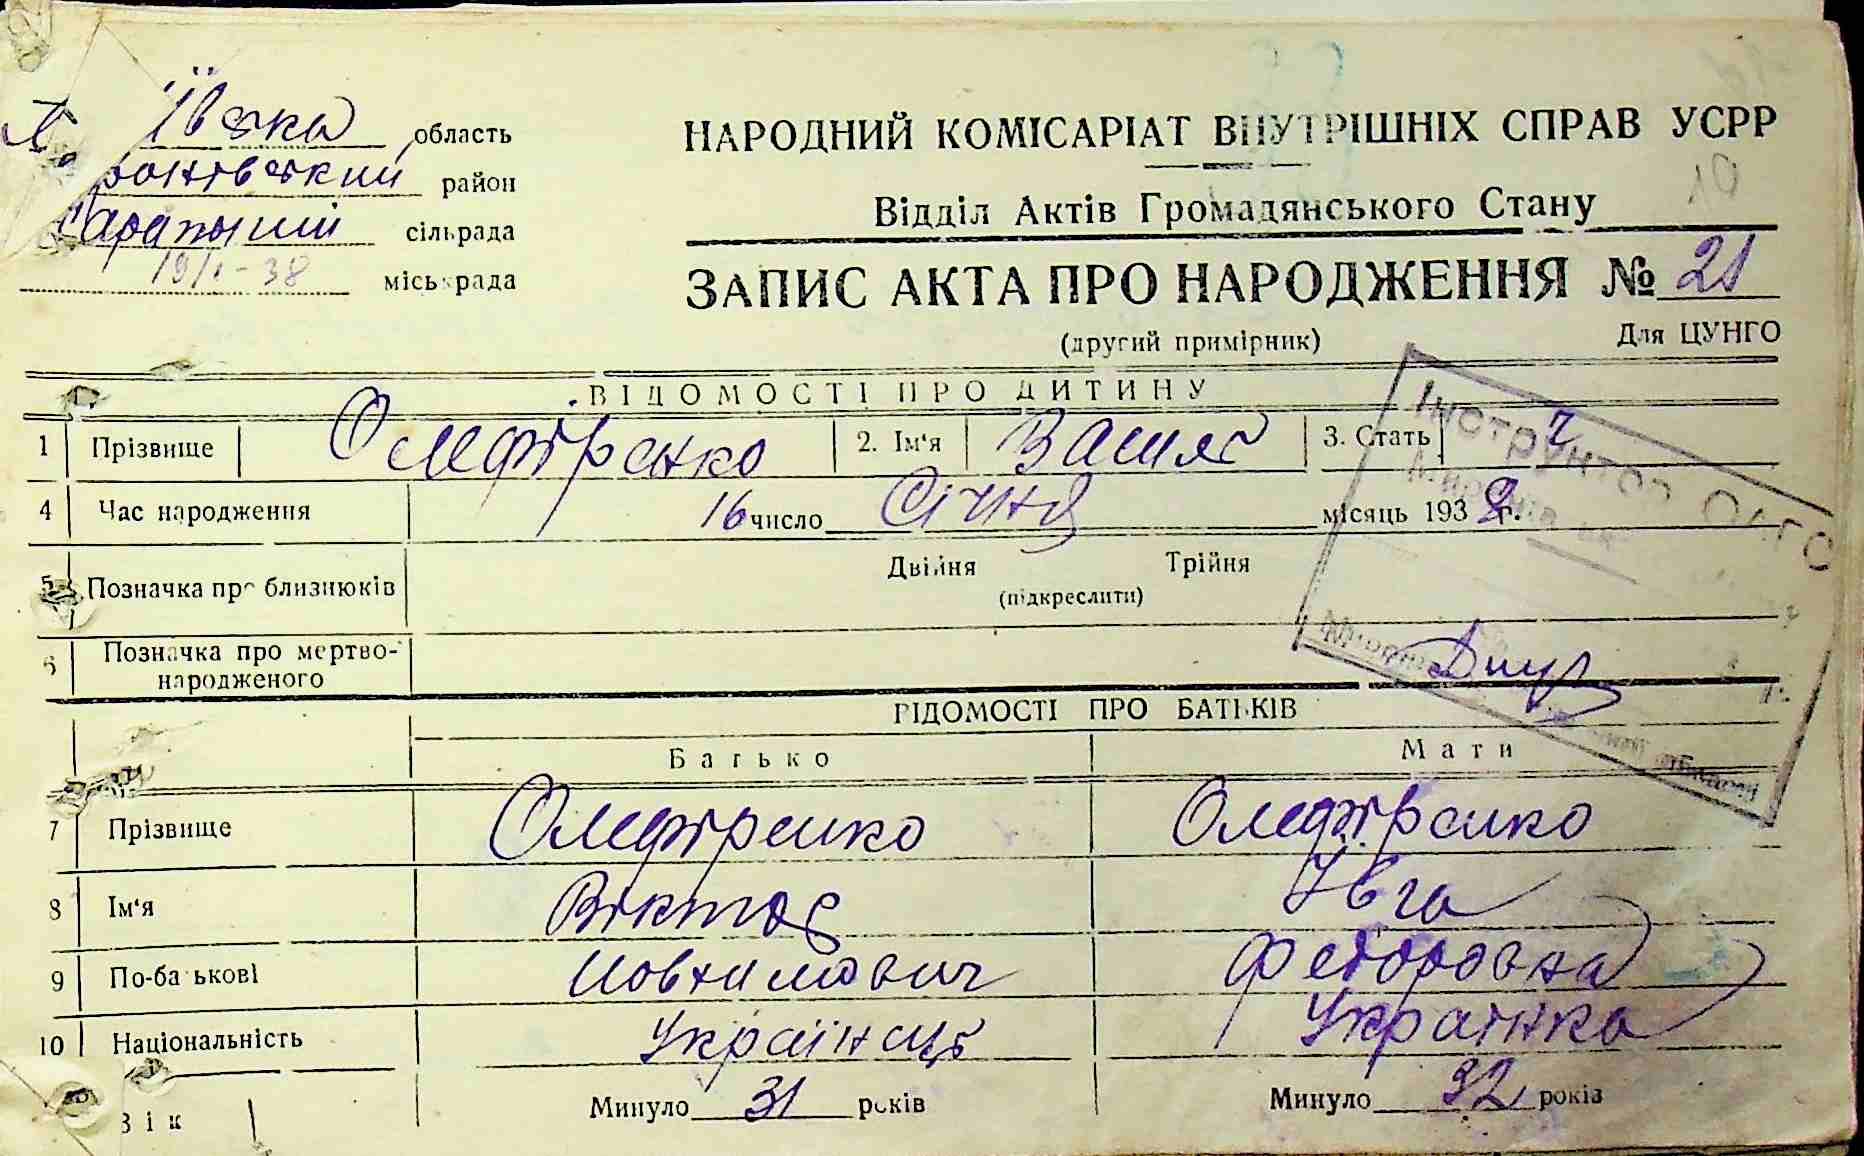 область
район
сільрада
19/I-38 міськрада
НАРОДНИЙ КОМІСАРІАТ ВНУТРІШНІХ СПРАВ УСРР
Відділ Актів Громадянського Стану
ЗАПИС АКТА ПРО НАРОДЖЕННЯ № 21
(другий примірник) Для ЦУНГО
ВІДОМОСТІ ПРО ДИТИНУ
1 Прізвище Олефіренко 2. Ім'я Василь 3. Стать ч
4 Час народження 16 число Січня місяць 1938 г.
5 Позначка про близнюків Двійня Трійня
(підкреслити)
6 Позначка про мертво-
народженого
ВІДОМОСТІ ПРО БАТЬКІВ
Батько Мати
7 Прізвище Олефіренко Олефіренко
8 Ім'я Віктор Ївга
9 По-батькові Федоровна
10 Національність Українець Українка
Вік Минуло 31 років Минуло 32 років
Інструктор ОАГС